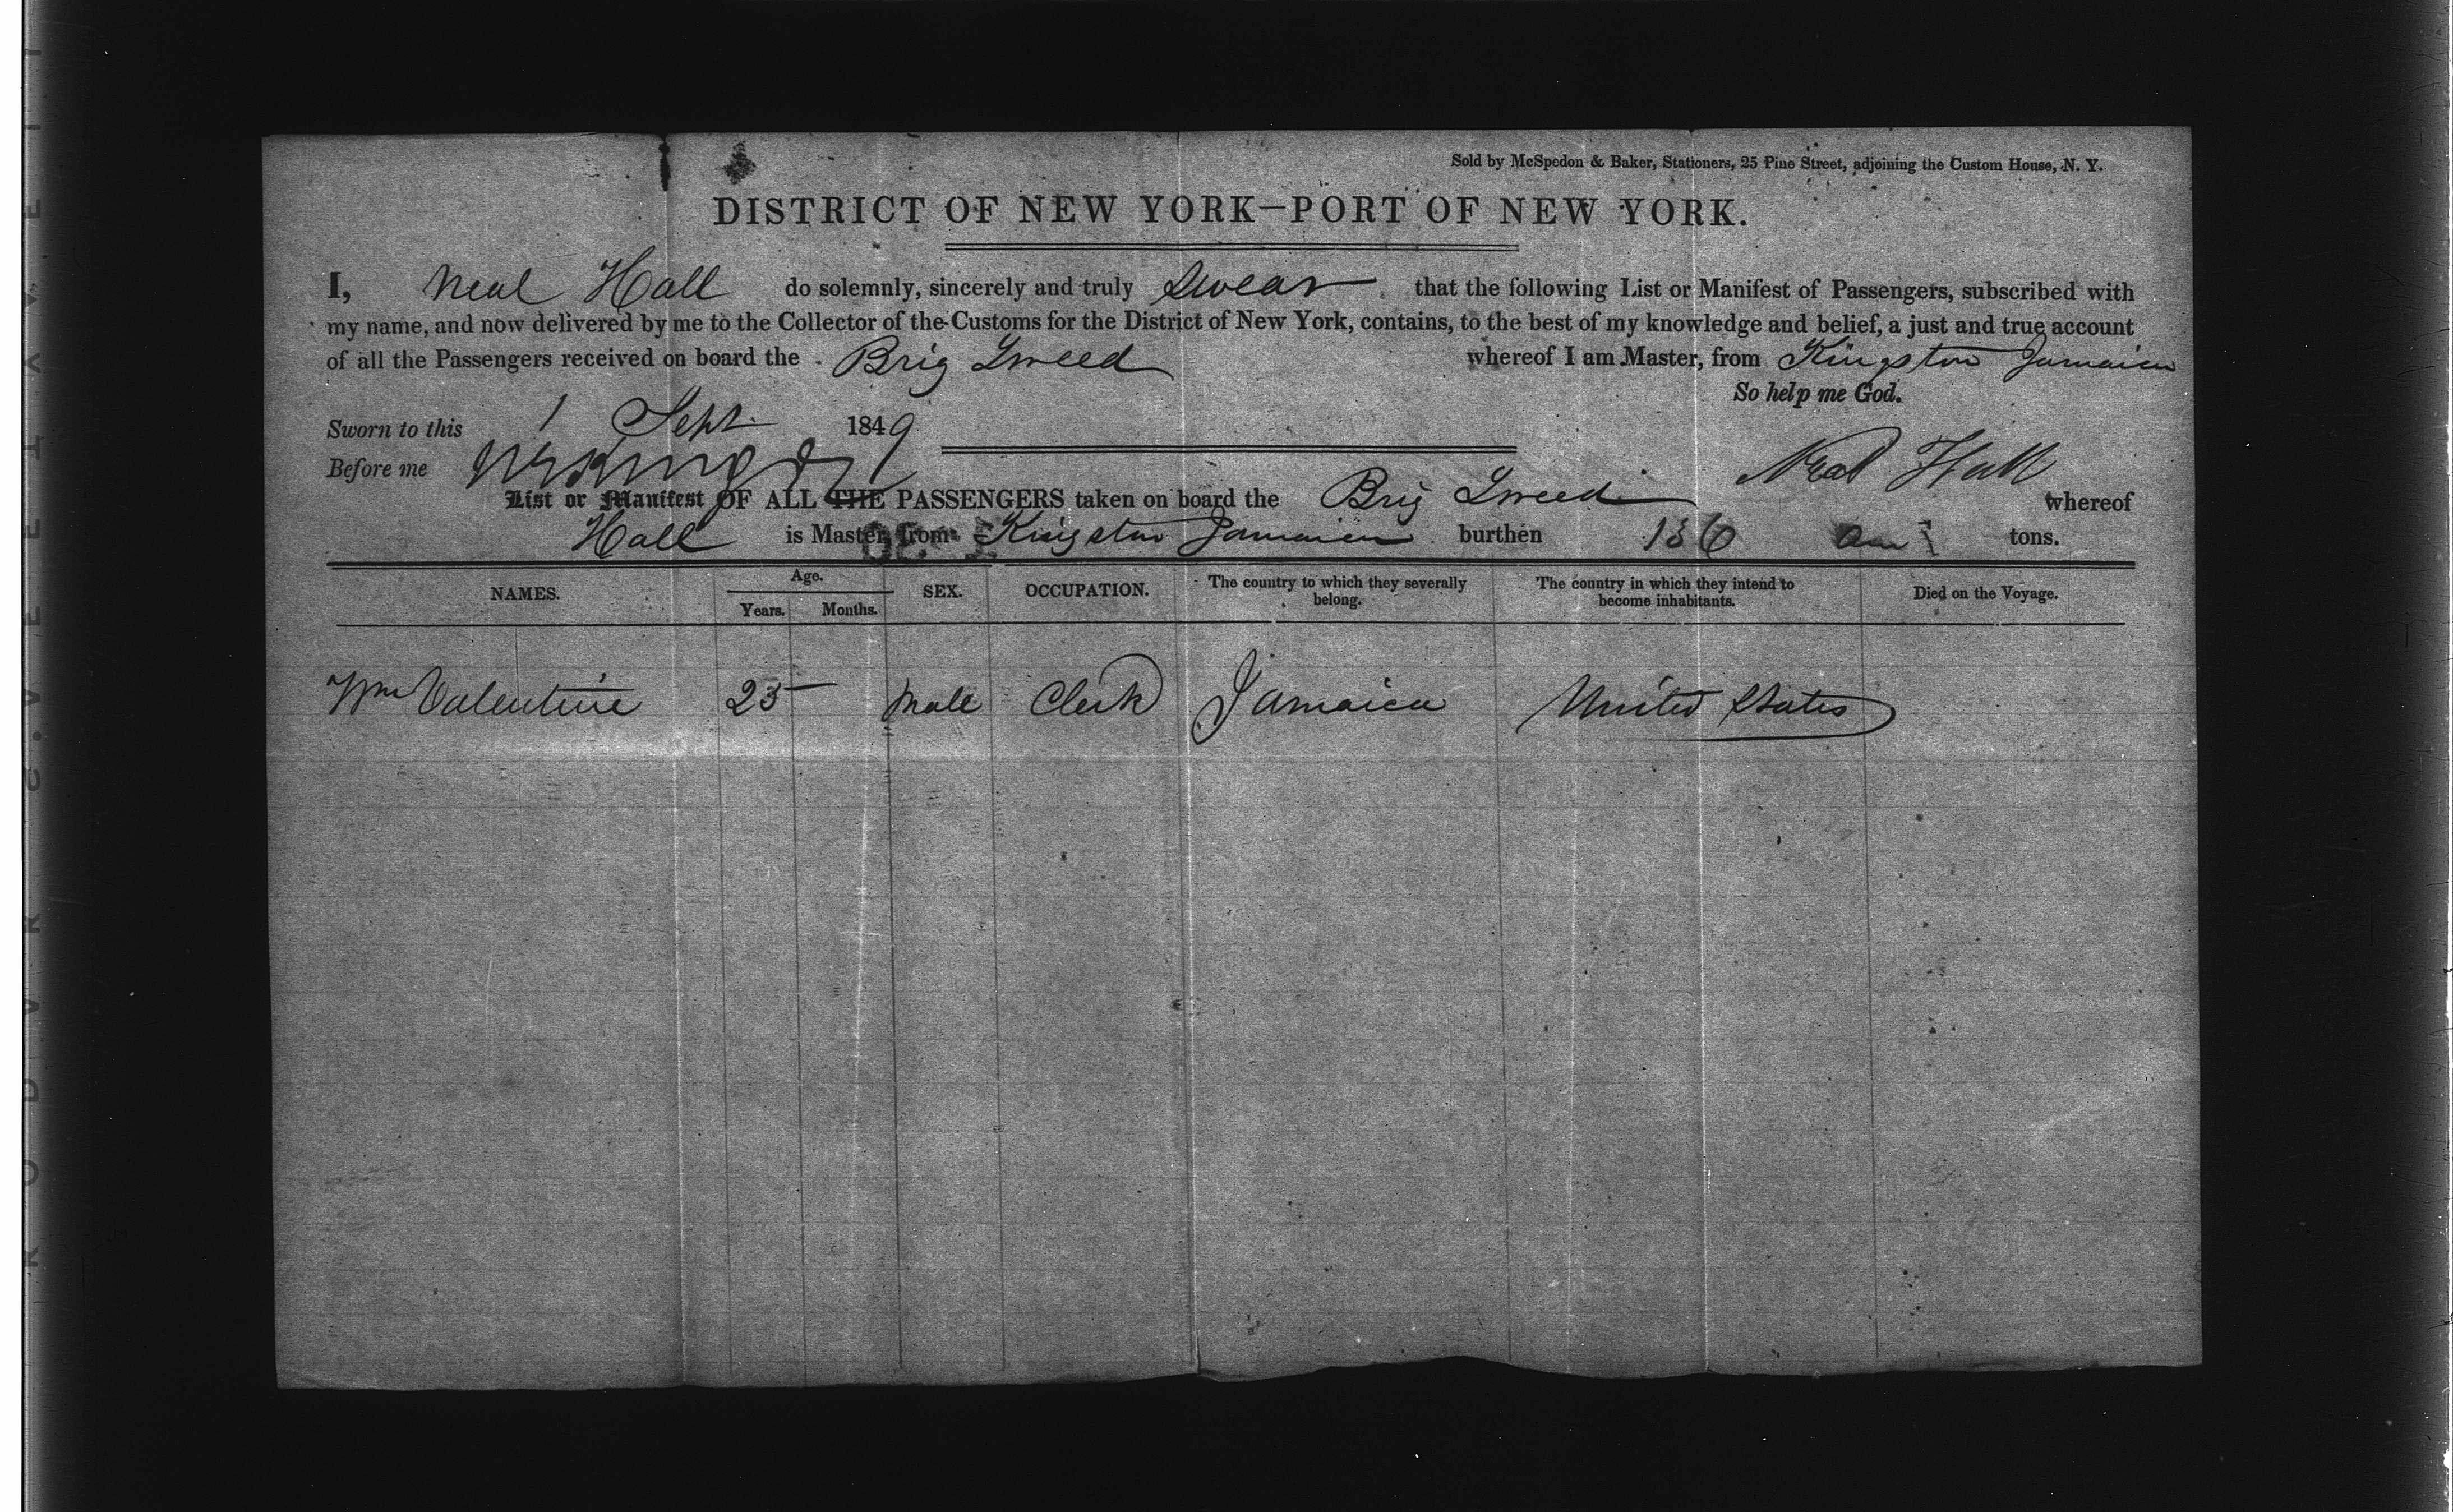 Sold by McSpedon & Baker, Stationers, 25 Pine Street, adjoining the Custom House, N. Y.
DISTRICT OF NEW YORK—PORT OF NEW YORK.
I, Neal Hall do solemnly, sincerely and truly Swear that the following List or Manifest of Passengers, subscribed with
my name, and now delivered by me to the Collector of the Customs for the District of New York, contains, to the best of my knowledge and belief, a just and true account
of all the Passengers received on board the Brig Tweed whereof I am Master, from Kingston Jamaica
So help me God.
Sworn to this 1 Sept 1849
Before me
Neal Hall
List or Manifest OF ALL THE PASSENGERS taken on board the Brig Tweed whereof
Hall is Master, from Kingston Jamaica burthen 136 tons.
NAMES. Age. Years. Months. SEX. OCCUPATION. The country to which they severally belong. The country in which they intend to become inhabitants. Died on the Voyage.
Wm Valentine 25 Male Clerk Jamaica United States